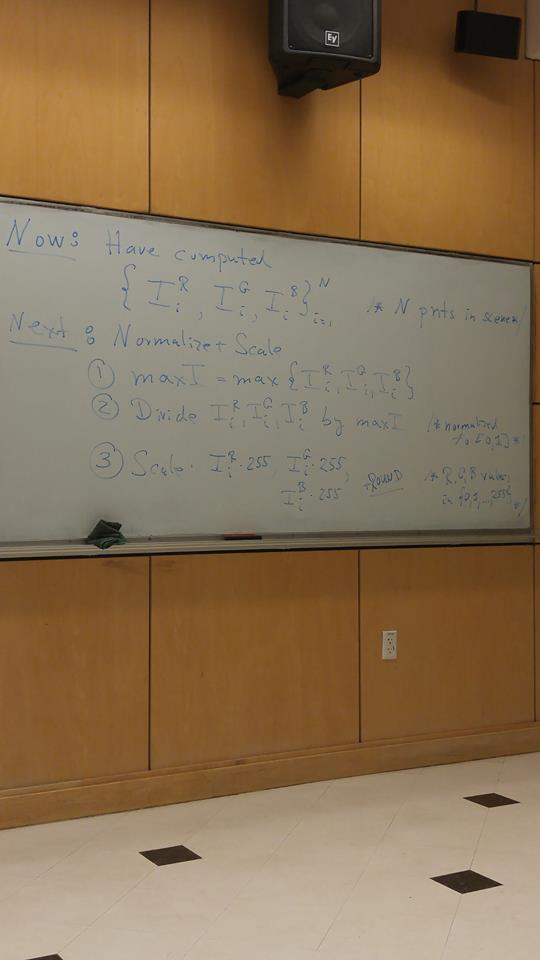 Ev
Now: Have computed
{ I_i^R, I_i^G, I_i^B }_{i=1}^N /* N pnts in scene */
Next: Normalize + Scale
① maxI = max { I_i^R, I_i^G, I_i^B }
② Divide I_i^R, I_i^G, I_i^B by maxI /* normalized
to [0,1] */
③ Scale. I_i^R · 255, I_i^G · 255,
I_i^B · 255 + ROUND /* R,G,B values
in {0,1,...,255} */